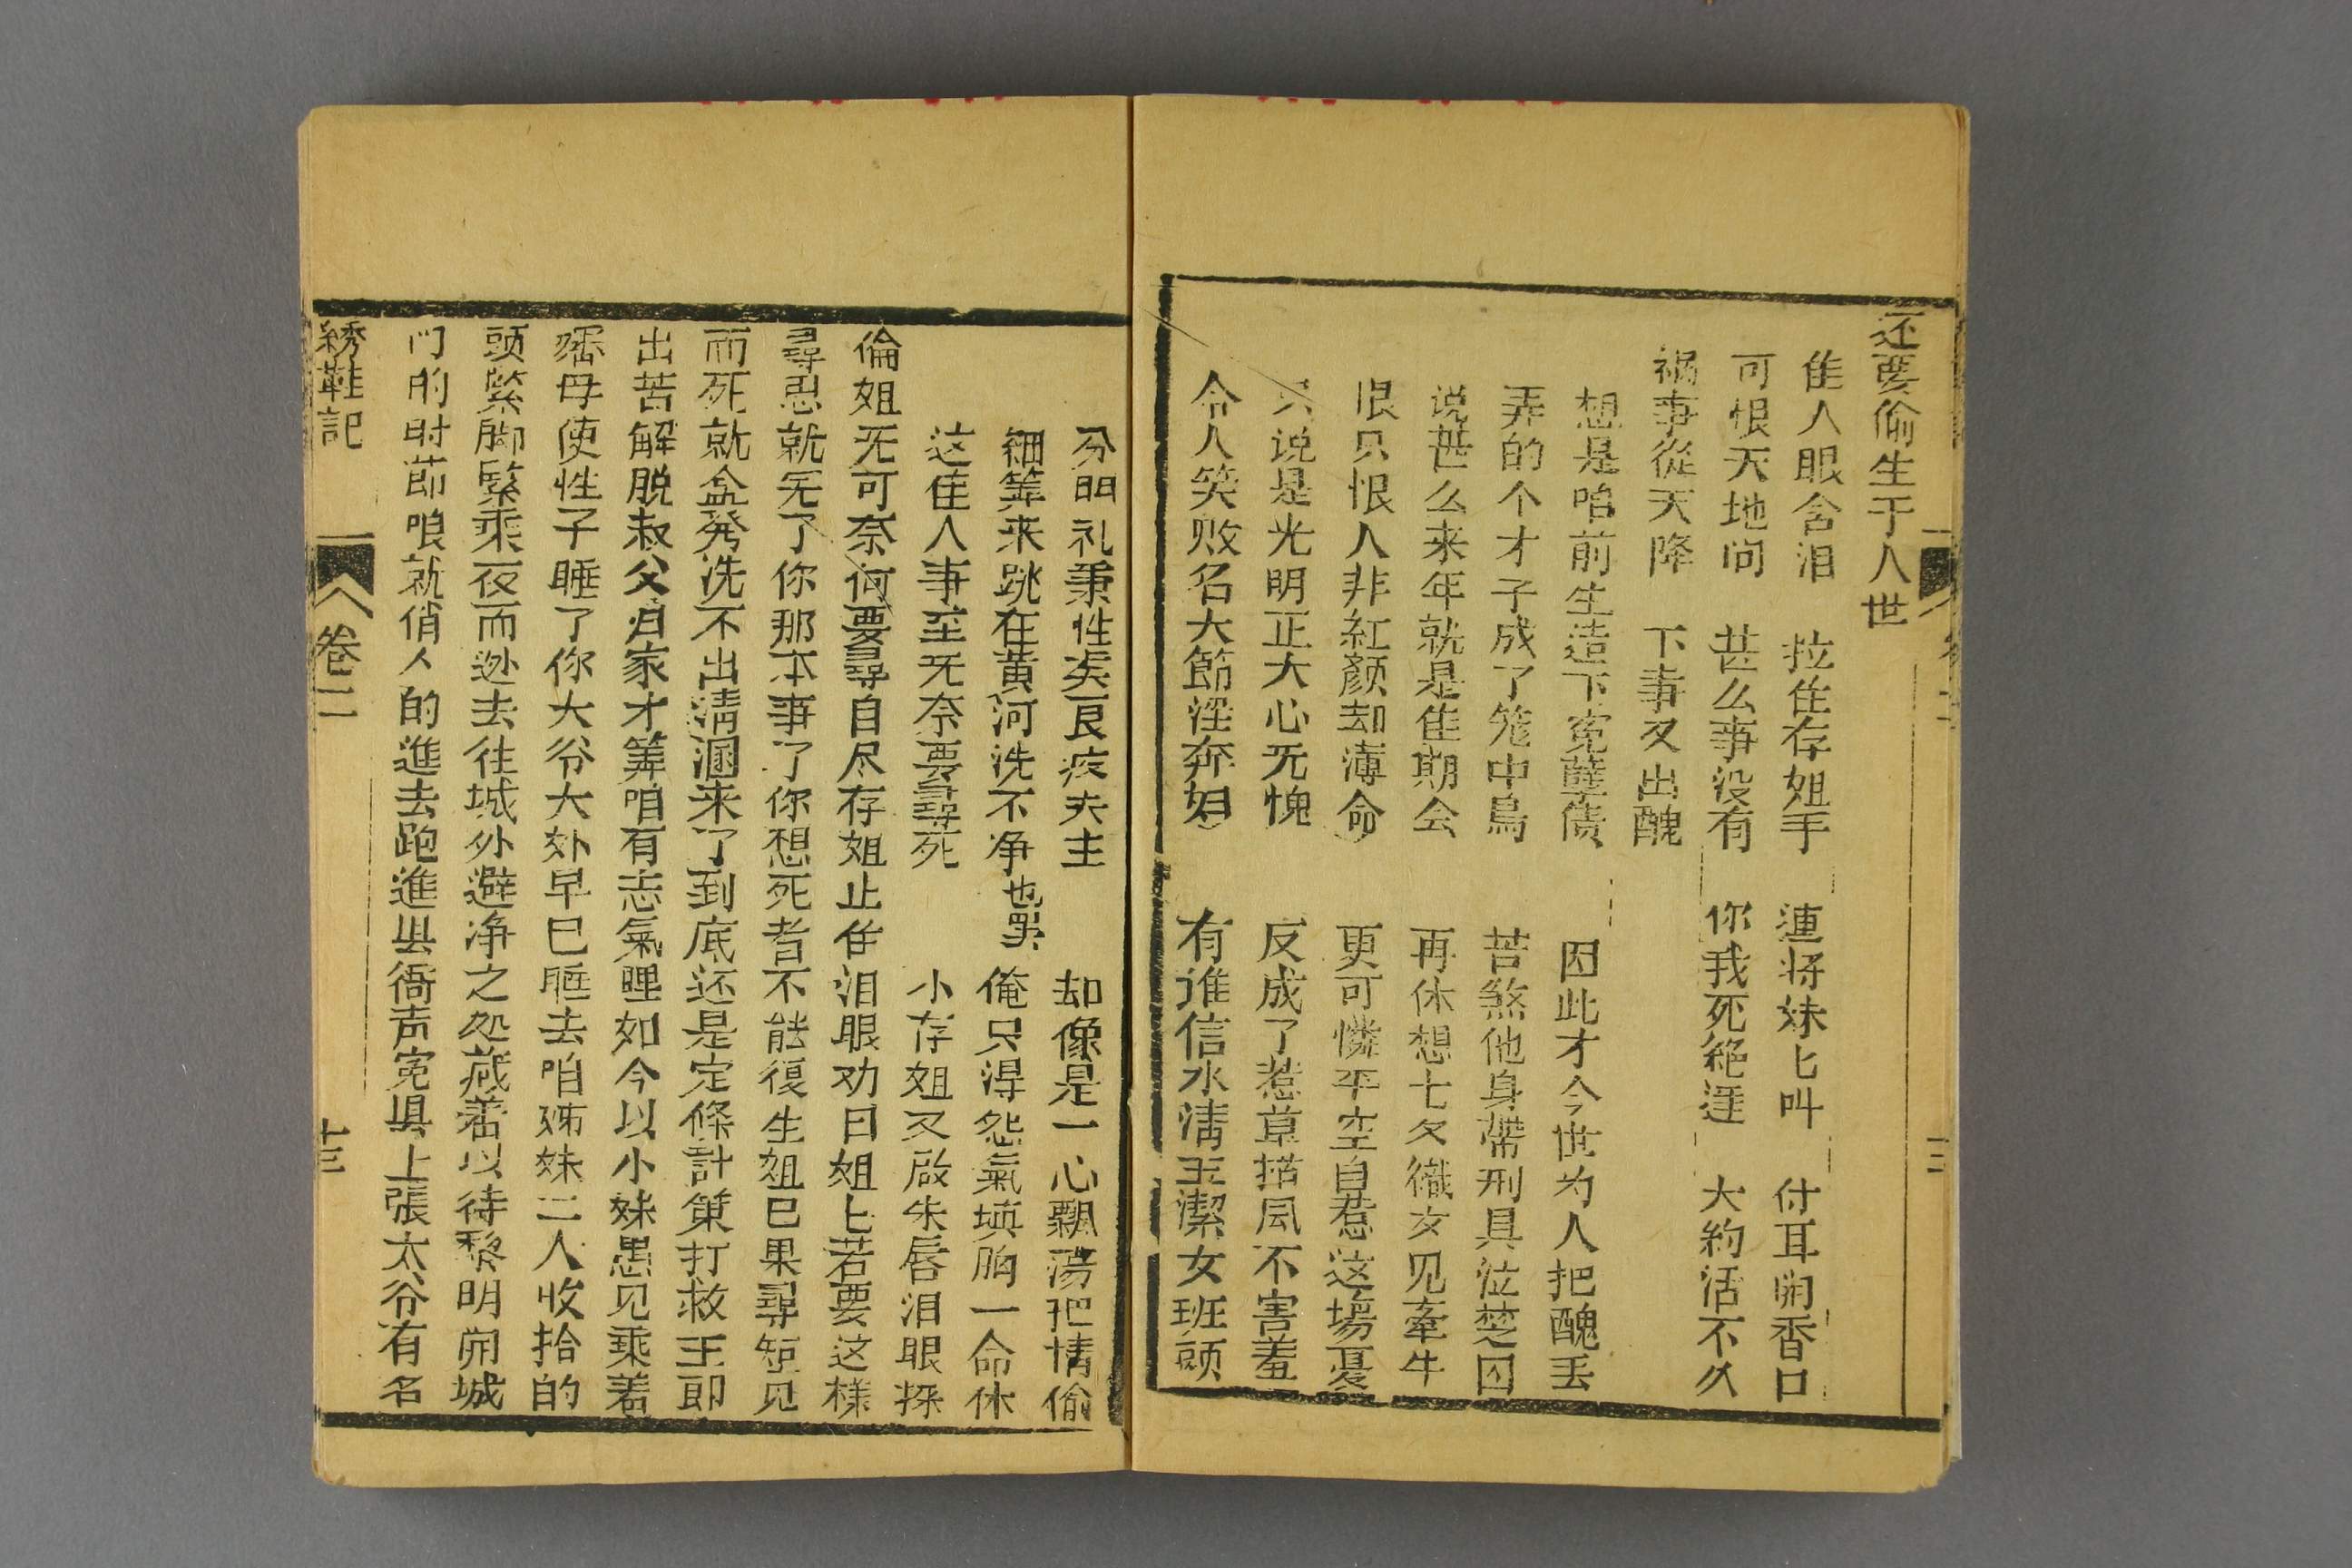 还要偷生于人世
隹人眼含泪 拉住存姐手 連将妹匕叫 付耳開香口
可恨天地问 甚么事没有 你我死絶逕 大約活不久
祸事從天降 下事又出醜
想是咱前生造下寃孽债 因此才今世为人把醜丢
弄的个才子成了笼中鳥 苦煞他身帶刑具泣楚囚
说甚么来年就是隹期会 再休想七夕織女见牽牛
恨只恨人非紅顏却薄命 更可憐平空自惹这塲憂
只说是光明正大心无愧 反成了惹草描风不害羞
令人笑败名大節淫奔妇 有谁信水清玉潔女班頭
分明礼秉性矣良疚夫主 却像是一心飄蕩把情偷
细筭来跳在黄河洗不净也罢 俺只淂怨氣填胸一命休
这隹人事至无奈要尋死 小存姐又啟朱唇泪眼揉
倫姐无可奈何要尋自尽存姐止住泪眼劝曰姐匕若要这樣
尋思就无了你那本事了你想死者不能復生姐巳果尋短见
而死就盆発洗不出清溷来了到底还是定條計策打救王郎
出苦解脱叔父自家才筭咱有志氣哩如今以小妹愚见乘着
婶母使性子睡了你大爷大外早巳睡去咱姊妹二人收拾的
头紧脚緊乘夜而逊去往城外避净之处藏着以待黎明開城
门的时節咱就俏人的進去跑進县衙声寃县上張太爷有名
綉鞋記 卷二 十三